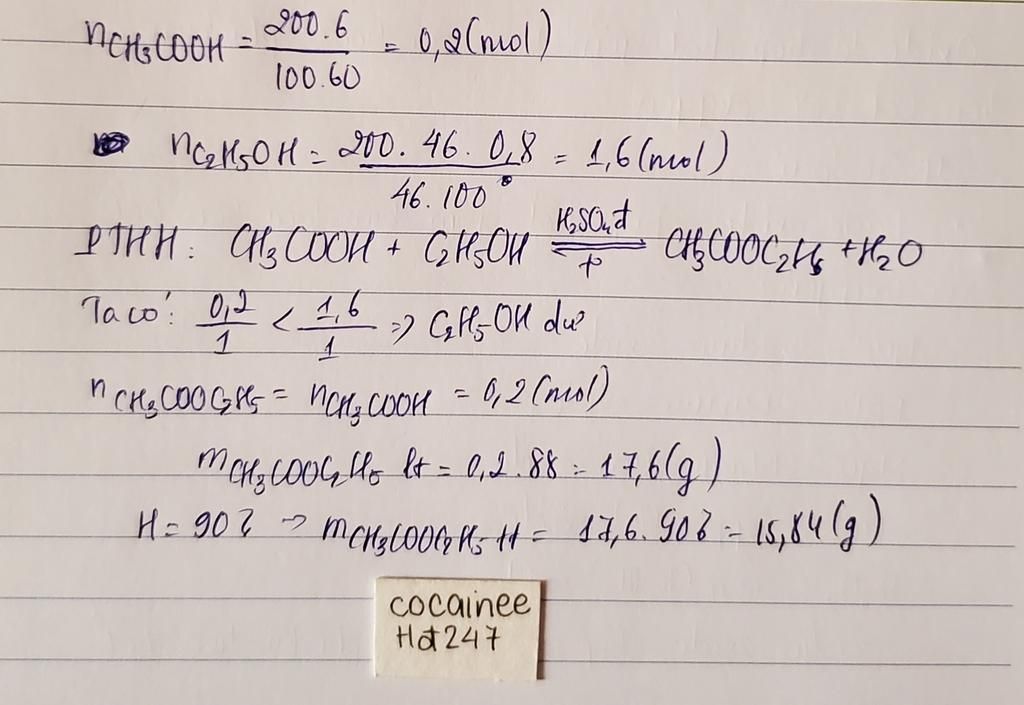 nCH₃COOH = 200.6/100.60 = 0,2(mol)
nC₂H₅OH = 200.46.0,8/46.100 = 1,6(mol)
PTHH: CH₃COOH + C₂H₅OH ⇌ (H₂SO₄đ, t°) CH₃COOC₂H₅ + H₂O
Ta có: 0,2/1 < 1,6/1 => C₂H₅OH dư
nCH₃COOC₂H₅ = nCH₃COOH = 0,2(mol)
mCH₃COOC₂H₅ lt = 0,2.88 = 17,6(g)
H = 90% → mCH₃COOC₂H₅ tt = 17,6.90% = 15,84(g)
cocainee
Hđ247